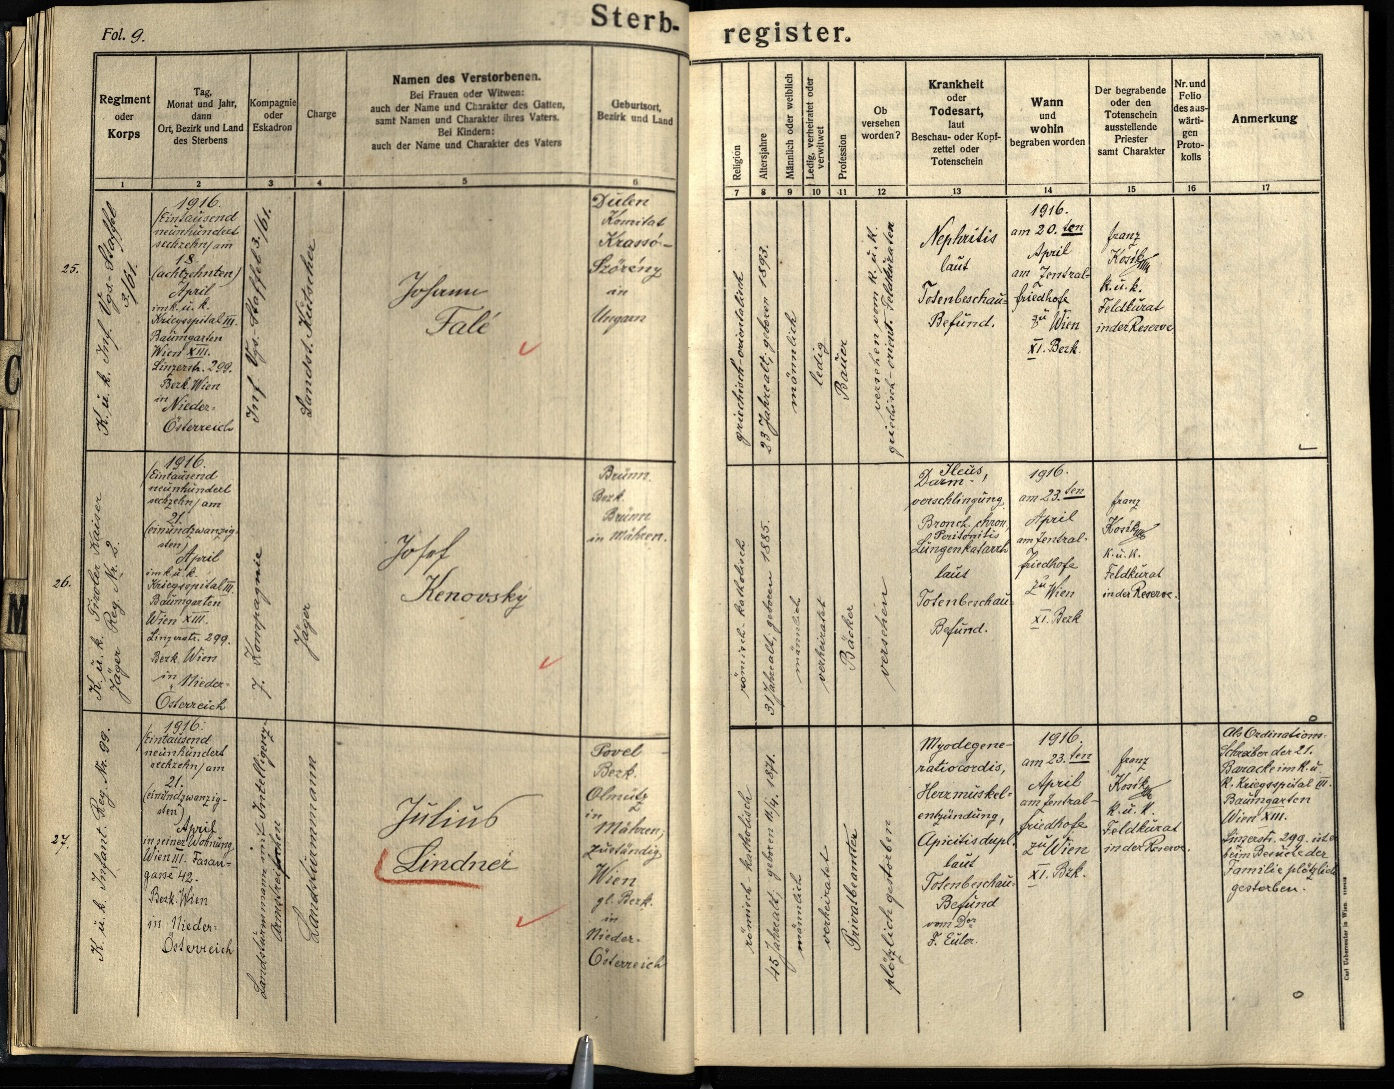 Fol. 9.
Sterb-
register.
Regiment
oder
Korps
Tag,
Monat und Jahr,
dann
Ort, Bezirk und Land
des Sterbens
Kompagnie
oder
Eskadron
Charge
Namen des Verstorbenen.
Bei Frauen oder Witwen:
auch der Name und Charakter des Gatten,
samt Namen und Charakter ihres Vaters.
Bei Kindern:
auch der Name und Charakter des Vaters
Geburtsort,
Bezirk und Land
Religion
Altersjahre
Männlich oder weiblich
Ledig, verheiratet oder
verwitwet
Profession
Ob
versehen
worden?
Krankheit
oder
Todesart,
laut
Beschau- oder Kopf-
zettel oder
Totenschein
Wann
und
wohin
begraben worden
Der begrabende
oder den
Totenschein
ausstellende
Priester
samt Charakter
Nr. und
Folio
des aus-
wärti-
gen
Proto-
kolls
Anmerkung
1 2 3 4 5 6 7 8 9 10 11 12 13 14 15 16 17
25.
K. u. k. Inf. Vgs. Staffel
3/61.
1916.
(Eintausend
neunhundert
sechzehn) am
18.
(achtzehnten)
April
im k. u. k.
Kriegsspital III.
Baumgarten
Wien XIII.
Linzerstr. 299.
Bezk. Wien
in
Nieder-
Österreich
Inf. Vgs. Staffel 3/61.
Landst. Kutscher
Johann
Falé
Dulen
Komitat
Krassó-
Szörény
in
Ungarn
griechisch-orientalisch
23 Jahre alt, geboren 1893.
männlich
ledig
Bauer
versehen vom k. u. k.
griechisch-orient. Feldkuraten
Nephritis
laut
Totenbeschau-
Befund.
1916.
am 20. ten
April
am Zentral-
friedhofe
zu Wien
XI. Bezk.
Franz
Kosik
k. u. k.
Feldkurat
in der Reserve
26.
K. u. k. Tiroler Kaiser
Jäger Reg. Nr. 2.
1916.
(Eintausend
neunhundert
sechzehn) am
21.
(einundzwanzig-
sten)
April
im k. u. k.
Kriegsspital III.
Baumgarten
Wien XIII.
Linzerstr. 299.
Bezk. Wien
in Nieder-
Österreich
7. Kompagnie
Jäger
Josef
Kenovsky
Brünn
Bezk.
Brünn
in Mähren.
römisch-katholisch
31 Jahre alt, geboren 1885.
männlich
verheiratet
Bäcker
versehen
Ileus,
Darm-
verschlingung,
Bronch. chron.
Peritonitis
Lungenkatarrh
laut
Totenbeschau-
Befund.
1916.
am 23. ten
April
am Zentral-
friedhofe
zu Wien
XI. Bezk
Franz
Kosik
k. u. k.
Feldkurat
in der Reserve.
27.
K. u. k. Infant. Reg. Nr. 99.
1916.
(Eintausend
neunhundert
sechzehn) am
21.
(einundzwanzig-
sten)
April
in seiner Wohnung
Wien III. Fasan-
gasse 42.
Bezk. Wien
in Nieder-
Österreich
Landsturmmann mit Intelligenz-
Landsturmmann
Julius
Lindner
Povel
Bezk.
Olmütz
in
Mähren,
zuständig
Wien
gl. Bezk.
in
Nieder-
Österreich
römisch katholisch
45 Jahre alt, geboren 11/4. 1871.
männlich
verheiratet
Privatbeamter
plötzlich gestorben
Myodegene-
ratio cordis,
Herzmuskel-
entzündung,
Apicitis dupl.
laut
Totenbeschau-
Befund
vom Dor
F. Euler.
1916.
am 23. ten
April
am Zentral-
friedhofe
zu Wien
XI. Bzk.
Franz
Kosik
k. u. k.
Feldkurat
in der Reserve.
Als Ordinations-
Schreiber der 21.
Baracke im k. u.
k. Kriegsspital III.
Baumgarten
Wien XIII.
Linzerstr. 299. ist er
beim Besuche der
Familie plötzlich
gestorben.
Carl Ueberreuter in Wien